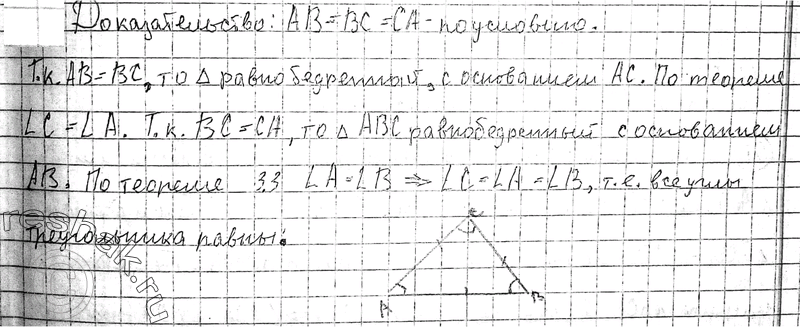 Доказательство: AB=BC=CA - по условию.
Т.к. AB=BC, то △ равнобедренный, с основанием AC. По теореме
∠C=∠A. Т.к. BC=CA, то △ ABC равнобедренный с основанием
AB. По теореме 3.3 ∠A=∠B ⇒ ∠C=∠A=∠B, т.е. все углы
треугольника равны.
C
A
B
reshak.ru